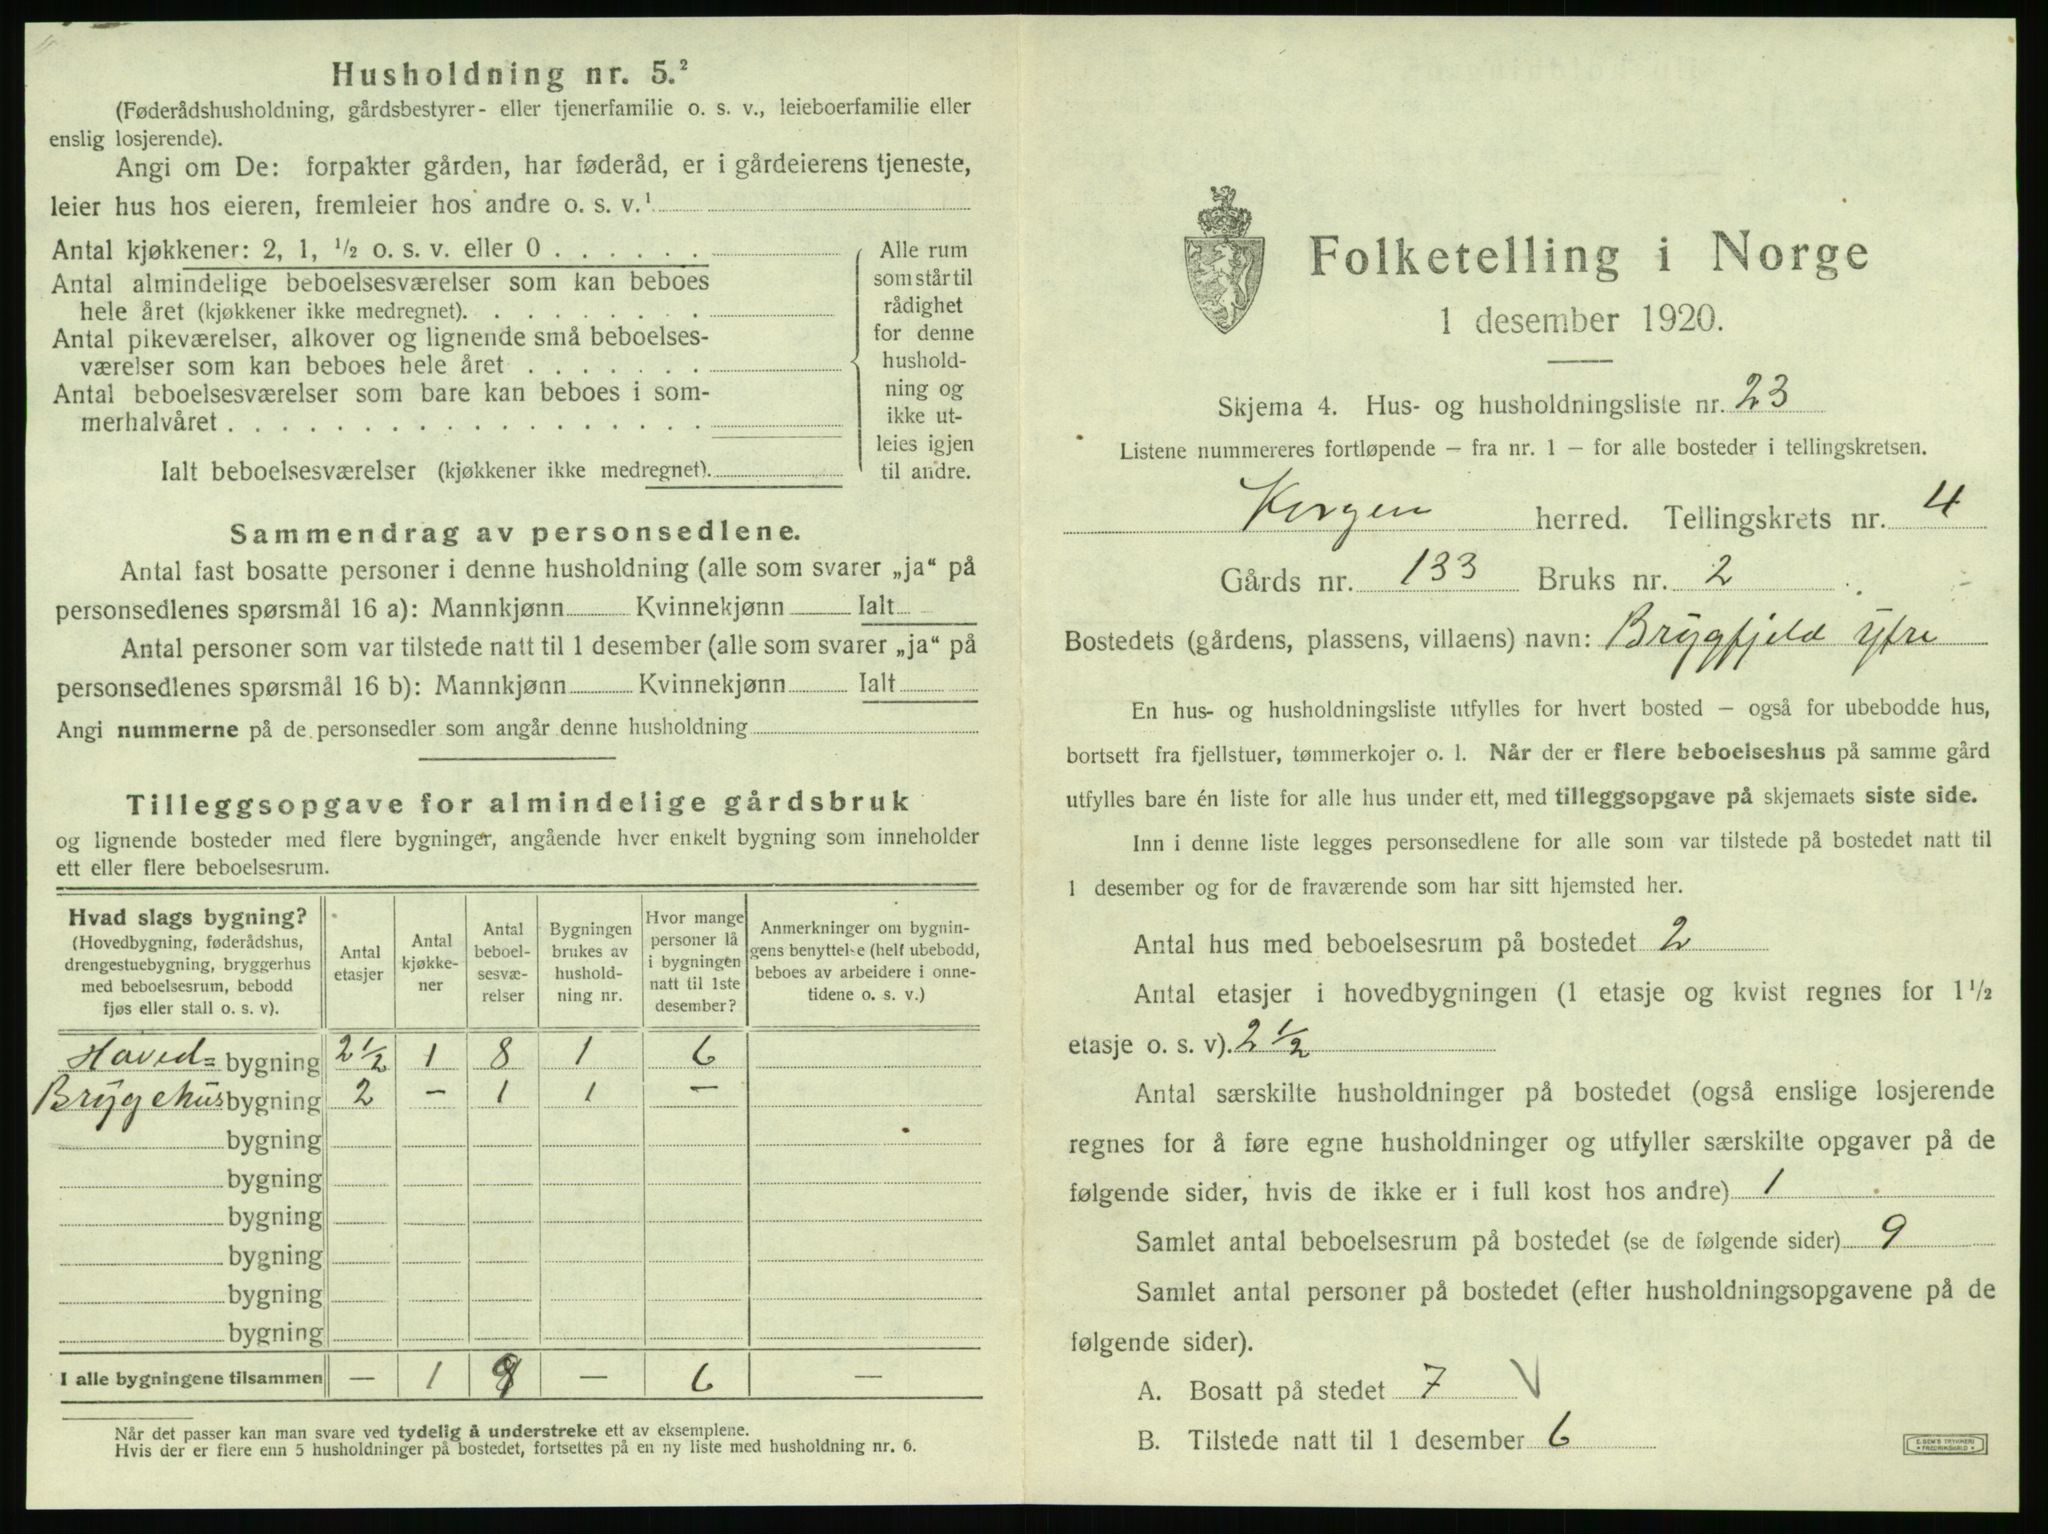 Husholdning nr. 5.²
(Føderådshusholdning, gårdsbestyrer- eller tjenerfamilie o. s. v., leieboerfamilie eller
enslig losjerende).
Angi om De: forpakter gården, har føderåd, er i gårdeierens tjeneste,
leier hus hos eieren, fremleier hos andre o. s. v.¹
Antal kjøkkener: 2, 1, ½ o. s. v. eller 0 . . . . . .
Antal almindelige beboelsesværelser som kan beboes
hele året (kjøkkener ikke medregnet). . . . . . . . .
Antal pikeværelser, alkover og lignende små beboelses-
værelser som kan beboes hele året . . . . . . .
Antal beboelsesværelser som bare kan beboes i som-
merhalvåret . . . . . . . . . . . . . . . . . .
Ialt beboelsesværelser (kjøkkener ikke medregnet).
Alle rum
som står til
rådighet
for denne
hushold-
ning og
ikke ut-
leies igjen
til andre.
Sammendrag av personsedlene.
Antal fast bosatte personer i denne husholdning (alle som svarer „ja“ på
personsedlenes spørsmål 16 a): Mannkjønn Kvinnekjønn Ialt
Antal personer som var tilstede natt til 1 desember (alle som svarer „ja“ på
personsedlenes spørsmål 16 b): Mannkjønn Kvinnekjønn Ialt
Angi nummerne på de personsedler som angår denne husholdning
Tilleggsopgave for almindelige gårdsbruk
og lignende bosteder med flere bygninger, angående hver enkelt bygning som inneholder
ett eller flere beboelsesrum.
Hvad slags bygning?
(Hovedbygning, føderådshus,
drengestuebygning, bryggerhus
med beboelsesrum, bebodd
fjøs eller stall o. s. v).
Antal
etasjer
Antal
kjøkke-
ner
Antal
beboel-
sesvæ-
relser
Bygningen
brukes av
hushold-
ning nr.
Hvor mange
personer lå
i bygningen
natt til 1ste
desember?
Anmerkninger om bygnin-
gens benyttelse (helt ubebodd,
beboes av arbeidere i onne-
tidene o. s. v.)
Hoved= bygning 2½ 1 8 1 6
Bryggehus bygning 2 – 1 1 –
bygning
bygning
bygning
bygning
bygning
bygning
I alle bygningene tilsammen — 1 9 — 6 —
Når det passer kan man svare ved tydelig å understreke ett av eksemplene.
Hvis der er flere enn 5 husholdninger på bostedet, fortsettes på en ny liste med husholdning nr. 6.
Folketelling i Norge
1 desember 1920.
Skjema 4. Hus- og husholdningsliste nr. 23
Listene nummereres fortløpende – fra nr. 1 – for alle bosteder i tellingskretsen.
Korgen herred. Tellingskrets nr. 4
Gårds nr. 133 Bruks nr. 2
Bostedets (gårdens, plassens, villaens) navn: Brygfjeld yfre
En hus- og husholdningsliste utfylles for hvert bosted – også for ubebodde hus,
bortsett fra fjellstuer, tømmerkojer o. l. Når der er flere beboelseshus på samme gård
utfylles bare én liste for alle hus under ett, med tilleggsopgave på skjemaets siste side.
Inn i denne liste legges personsedlene for alle som var tilstede på bostedet natt til
1 desember og for de fraværende som har sitt hjemsted her.
Antal hus med beboelsesrum på bostedet 2
Antal etasjer i hovedbygningen (1 etasje og kvist regnes for 1½
etasje o. s. v). 2½
Antal særskilte husholdninger på bostedet (også enslige losjerende
regnes for å føre egne husholdninger og utfyller særskilte opgaver på de
følgende sider, hvis de ikke er i full kost hos andre) 1
Samlet antal beboelsesrum på bostedet (se de følgende sider) 9
Samlet antal personer på bostedet (efter husholdningsopgavene på de
følgende sider).
A. Bosatt på stedet 7 V
B. Tilstede natt til 1 desember 6
E. SEM'S TRYKKERI
FREDRIKSHALD